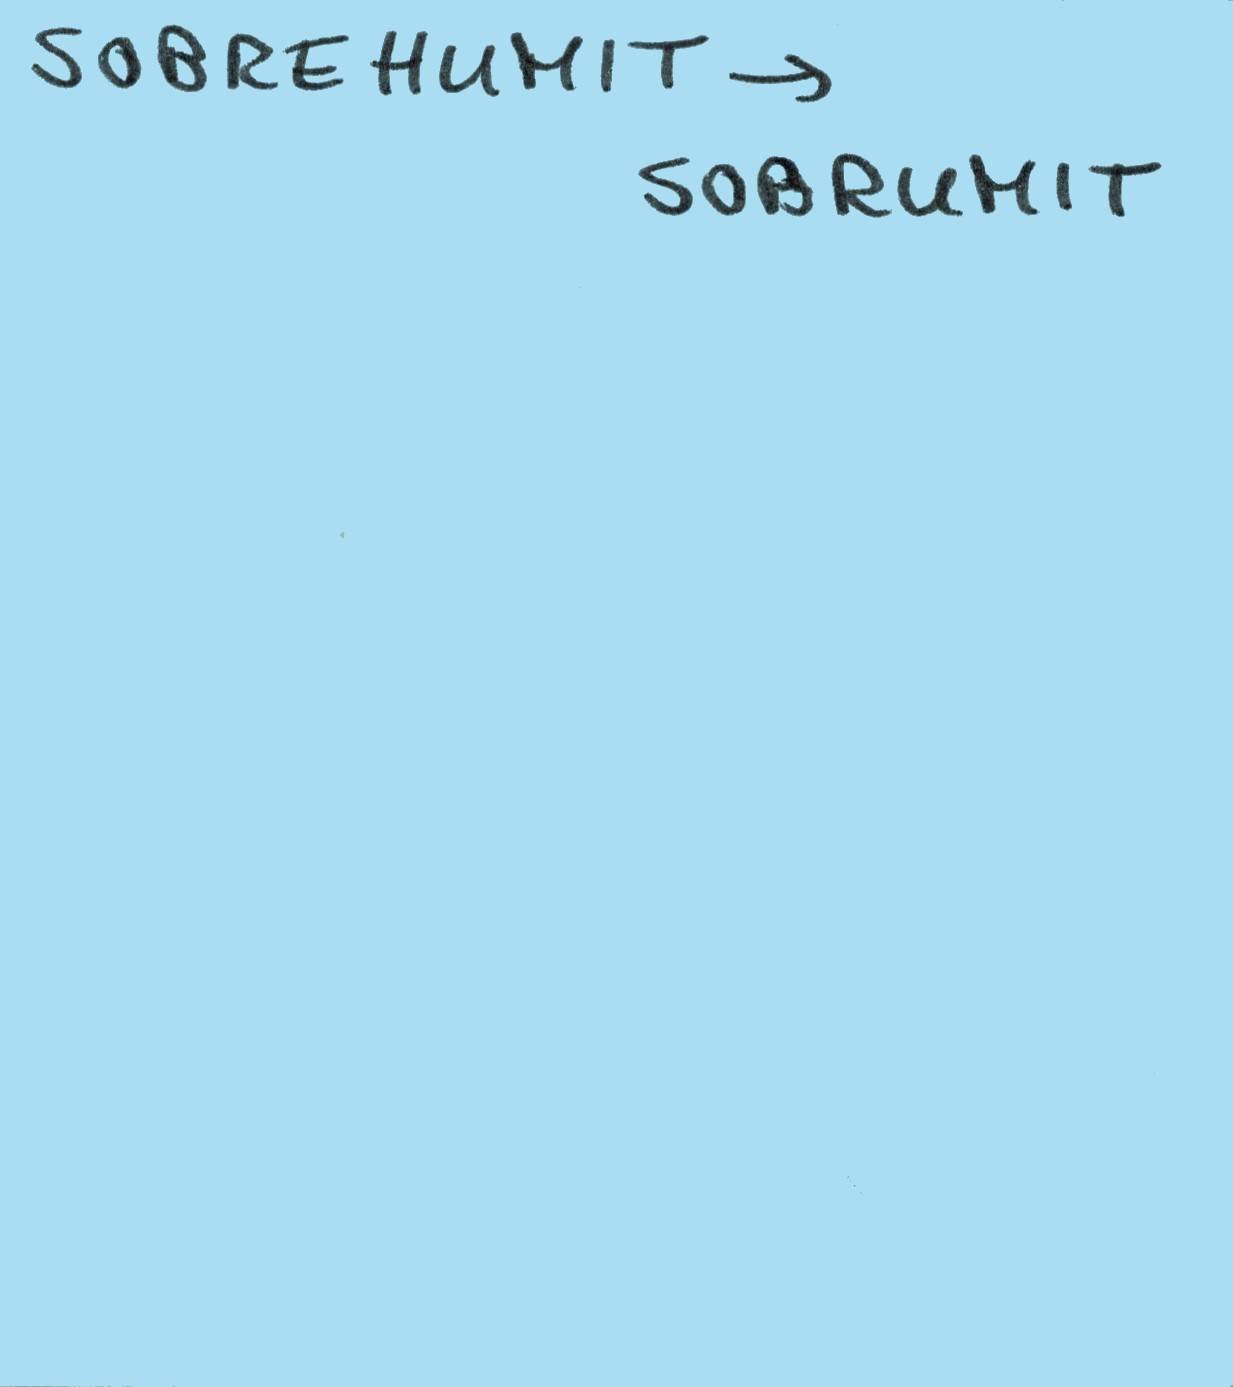 SOBREHUMIT →
SOBRUMIT